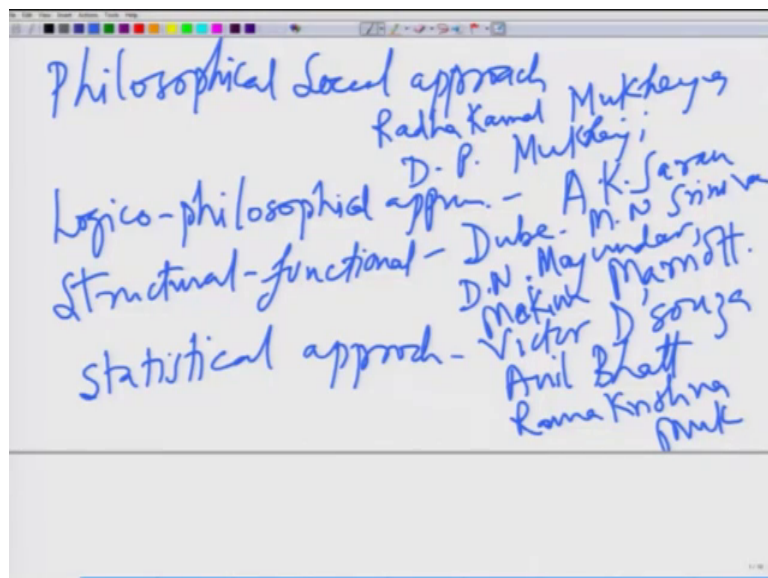 Edit View Insert Actions Tools Help
Philosophical Social approach
Radha Kamal Mukherjee
D. P. Mukherji
Logico-philosophical appro. - A.K. Saran
Structural-functional - Dube - M.N Sriniva
D.N. Majumdar,
McKim Marriott.
Statistical approch - Victor D'souza
Anil Bhatt
Rama Krishna
Muk